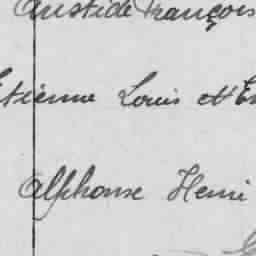 Aristide François
Etienne Louis et
Alphonse Henri